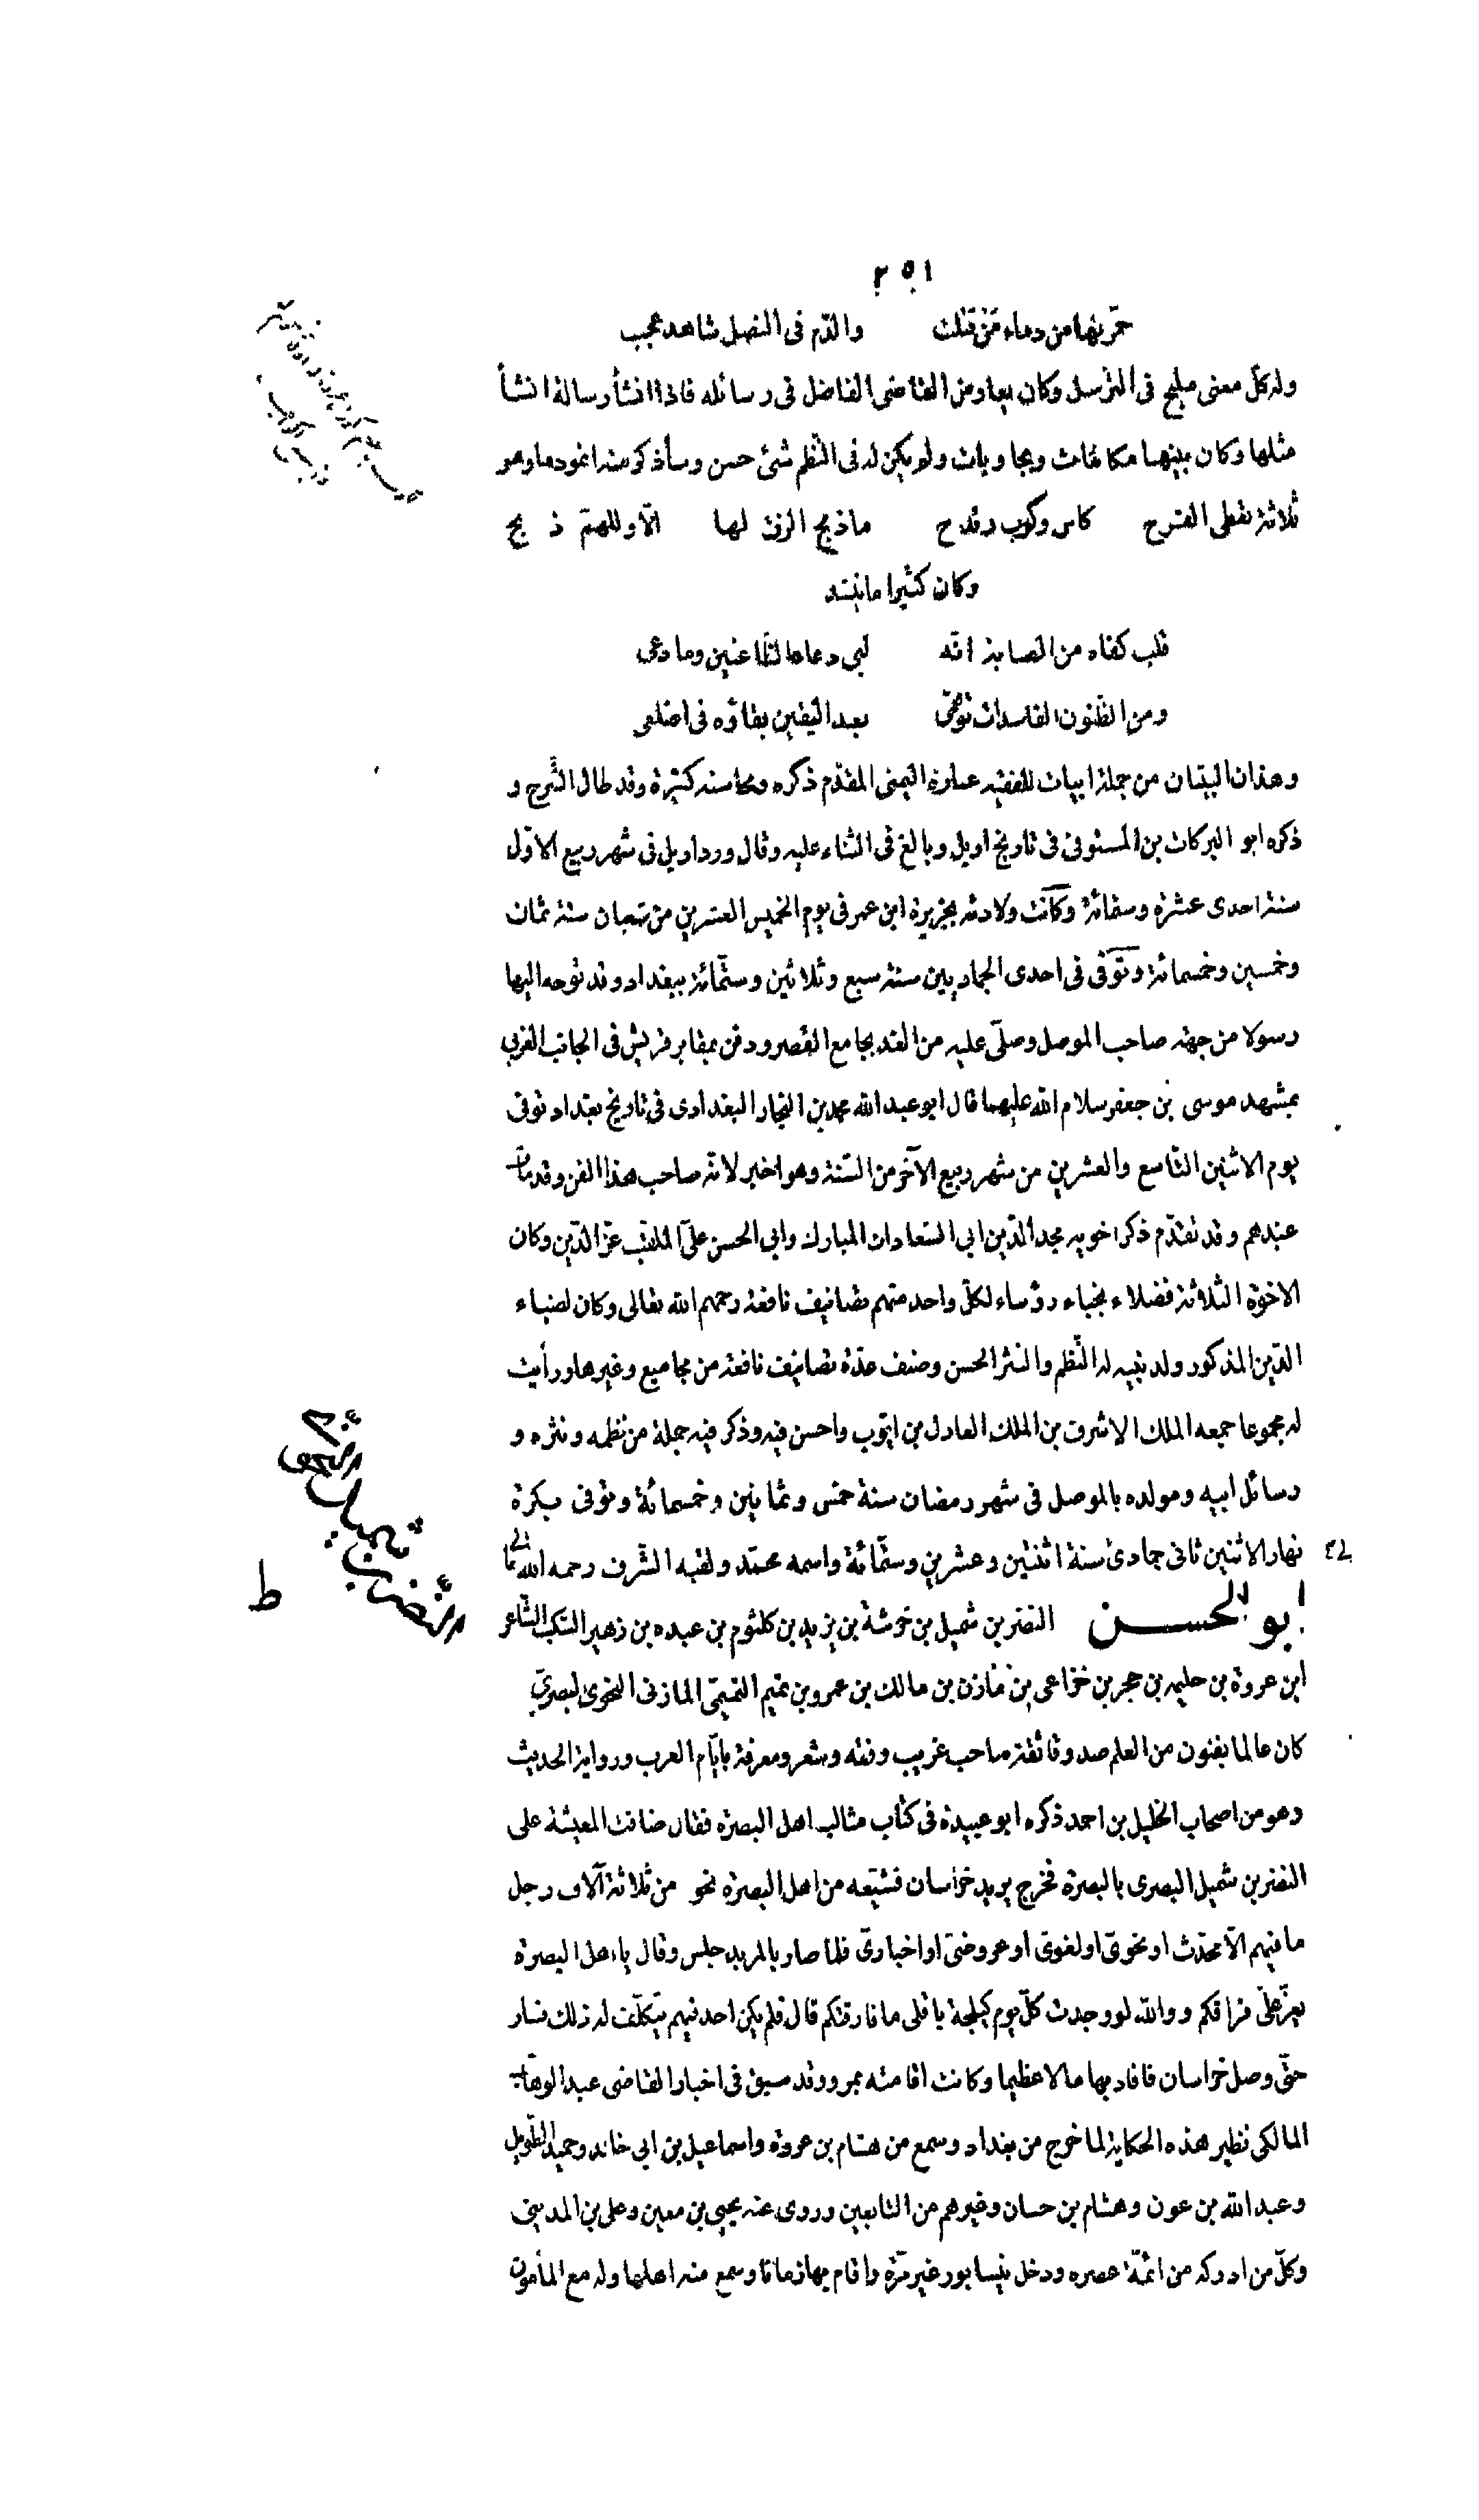 ٢٥١
حمرتها من دماء من قتلت والدّم فى النصل شاهد عجب
وله كلّ معنى مليح فى الترسل وكان يعاوض القاضى الفاضل فى رسائله فاذا انشأ رسالة انشأ
مثلها وكان بينهما مكاتبات ومجاوبات ولم يكن له فى النّظم شئ حسن وسأذكر منه انموذجا وهو
ثلاثة تعطى الفرح كاس وكوب وقدح ما ذبح الزق لها الّا وللهمّ ذبح
وكان كثيرا ما ينشد
قلب كفاه من الصبابة انّه لبى دعاء الظاعنين وما دعى
ومن الظّنون الفاسدات توهّمى بعد اليقين بقاؤه فى اضلعى
وهذان البيتان من جملة ابيات للفقيه عمارة اليمنى المقدّم ذكره ومحاسنه كثيرة وقد طال الشّرح و
ذكره ابو البركات بن المستوفى فى تاريخ اربل وبالغ فى الثناء عليه وقال ورد اربل فى شهر ربيع الاوّل
سنة احدى عشرة وستمائة وكانت ولادته بجزيرة ابن عمر فى يوم الخميس العشرين من شعبان سنة ثمان
وخمسين وخمسمائة وتوفى فى احدى الجماديين سنة سبع وثلاثين وستّمائة ببغداد وقد توجه اليها
رسولا من جهة صاحب الموصل وصلّى عليه من الغد بجامع القصر ودفن بمقابر قريش فى الجانب الغربى
بمشهد موسى بن جعفر سلام الله عليهما قال ابو عبد الله محمد بن النجار البغدادى فى تاريخ بغداد توفى
يوم الاثنين التّاسع والعشرين من شهر ربيع الآخر من السّنة وهو اخبر لانّه صاحب هذا الفن وقد مات
عندهم وقد تقدّم ذكر اخويه مجد الدّين ابى السّعادات المبارك وابى الحسن علىّ الملقب عزّ الدّين وكان
الاخوة الثلاثة فضلاء نجباء رؤساء لكلّ واحد منهم تصانيف نافعة رحمهم الله تعالى وكان لضياء
الدّين المذكور ولد نبيه له النّظم والنثر الحسن وصنف عدّة تصانيف نافعة من مجاميع وغيرها ورأيت
له مجموعا جمعه الملك الاشرف بن الملك العادل بن ايّوب واحسن فيه وذكر فيه جملة من نظمه ونثره و
رسائل ابيه ومولده بالموصل فى شهر رمضان سنة خمس وثمانين وخمسمائة وتوفى بكرة
نهار الاثنين ثانى جمادى سنة اثنتين وعشرين وستّمائة واسمه محمّد ولقبه الشّرف رحمه الله تعالى
ابو الحسن النضر بن شميل بن خرشة بن يزيد بن كلثوم بن عبده بن زهير السّكب الشّاعر
ابن عروة بن حليمه بن حجر بن خزاعى بن مازن بن مالك بن عمرو بن تميم التميمىّ المازنى النحوى البصرىّ
كان عالما بفنون من العلم صدوقا ثقة صاحب غريب وفقه وشعر ومعرفة بايّام العرب ورواية الحديث
وهو من اصحاب الخليل بن احمد ذكره ابو عبيدة فى كتاب مثالب اهل البصرة فقال ضاقت المعيشة على
النضر بن شميل البصرى بالبصرة فخرج يريد خراسان فشيّعه من اهل البصرة نحو من ثلاثة آلاف رجل
ما فيهم الّا محدّث او نحوىّ او لغوىّ او عروضىّ او اخبارىّ فلمّا صار بالمربد جلس وقال يا اهل البصرة
يعزّ علىّ فراقكم ووالله لو وجدت كلّ يوم كيلجة باقلى ما فارقتكم قال فلم يكن احد فيهم يتكلّف له ذلك فسار
حتّى وصل خراسان فافاد بها مالا عظيما وكانت اقامته بمرو وقد سبق فى اخبار القاضى عبد الوهّاب
المالكى نظير هذه الحكاية لما خرج من بغداد وسمع من هشام بن عروة واسماعيل بن ابى خالد وحميد الطّويل
وعبد الله بن عون وهشام بن حسان وغيرهم من التابعين وروى عنه يحيى بن معين وعلى بن المدينى
وكلّ من ادركه من ائمّة عصره ودخل نيسابور غير مرّة واقام بها زمانا وسمع منه اهلها وله مع المأمون
النّضر بن شميل النّحوىّ
ط